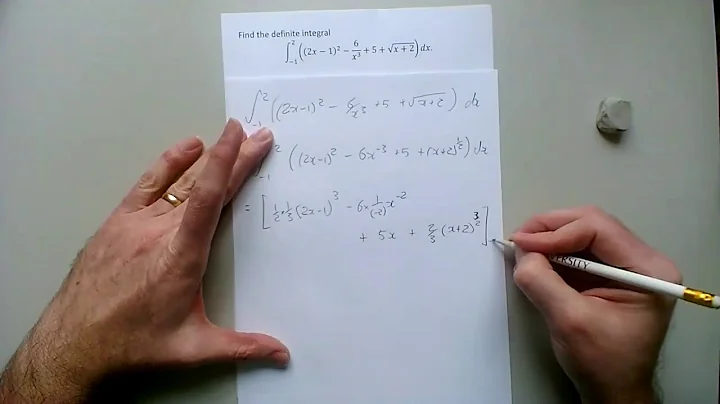 Find the definite integral
∫₋₁² ((2x − 1)² − 6/x³ + 5 + √(x + 2)) dx.
∫₋₁² ((2x−1)² − 6/x³ + 5 + √(x+2)) dx
∫₋₁² ((2x−1)² − 6x⁻³ + 5 + (x+2)^½) dx
= [ ½ × ⅓ (2x−1)³ − 6 × 1/(−2) x⁻²
+ 5x + ⅔ (x+2)^(3/2) ]
ERSITY